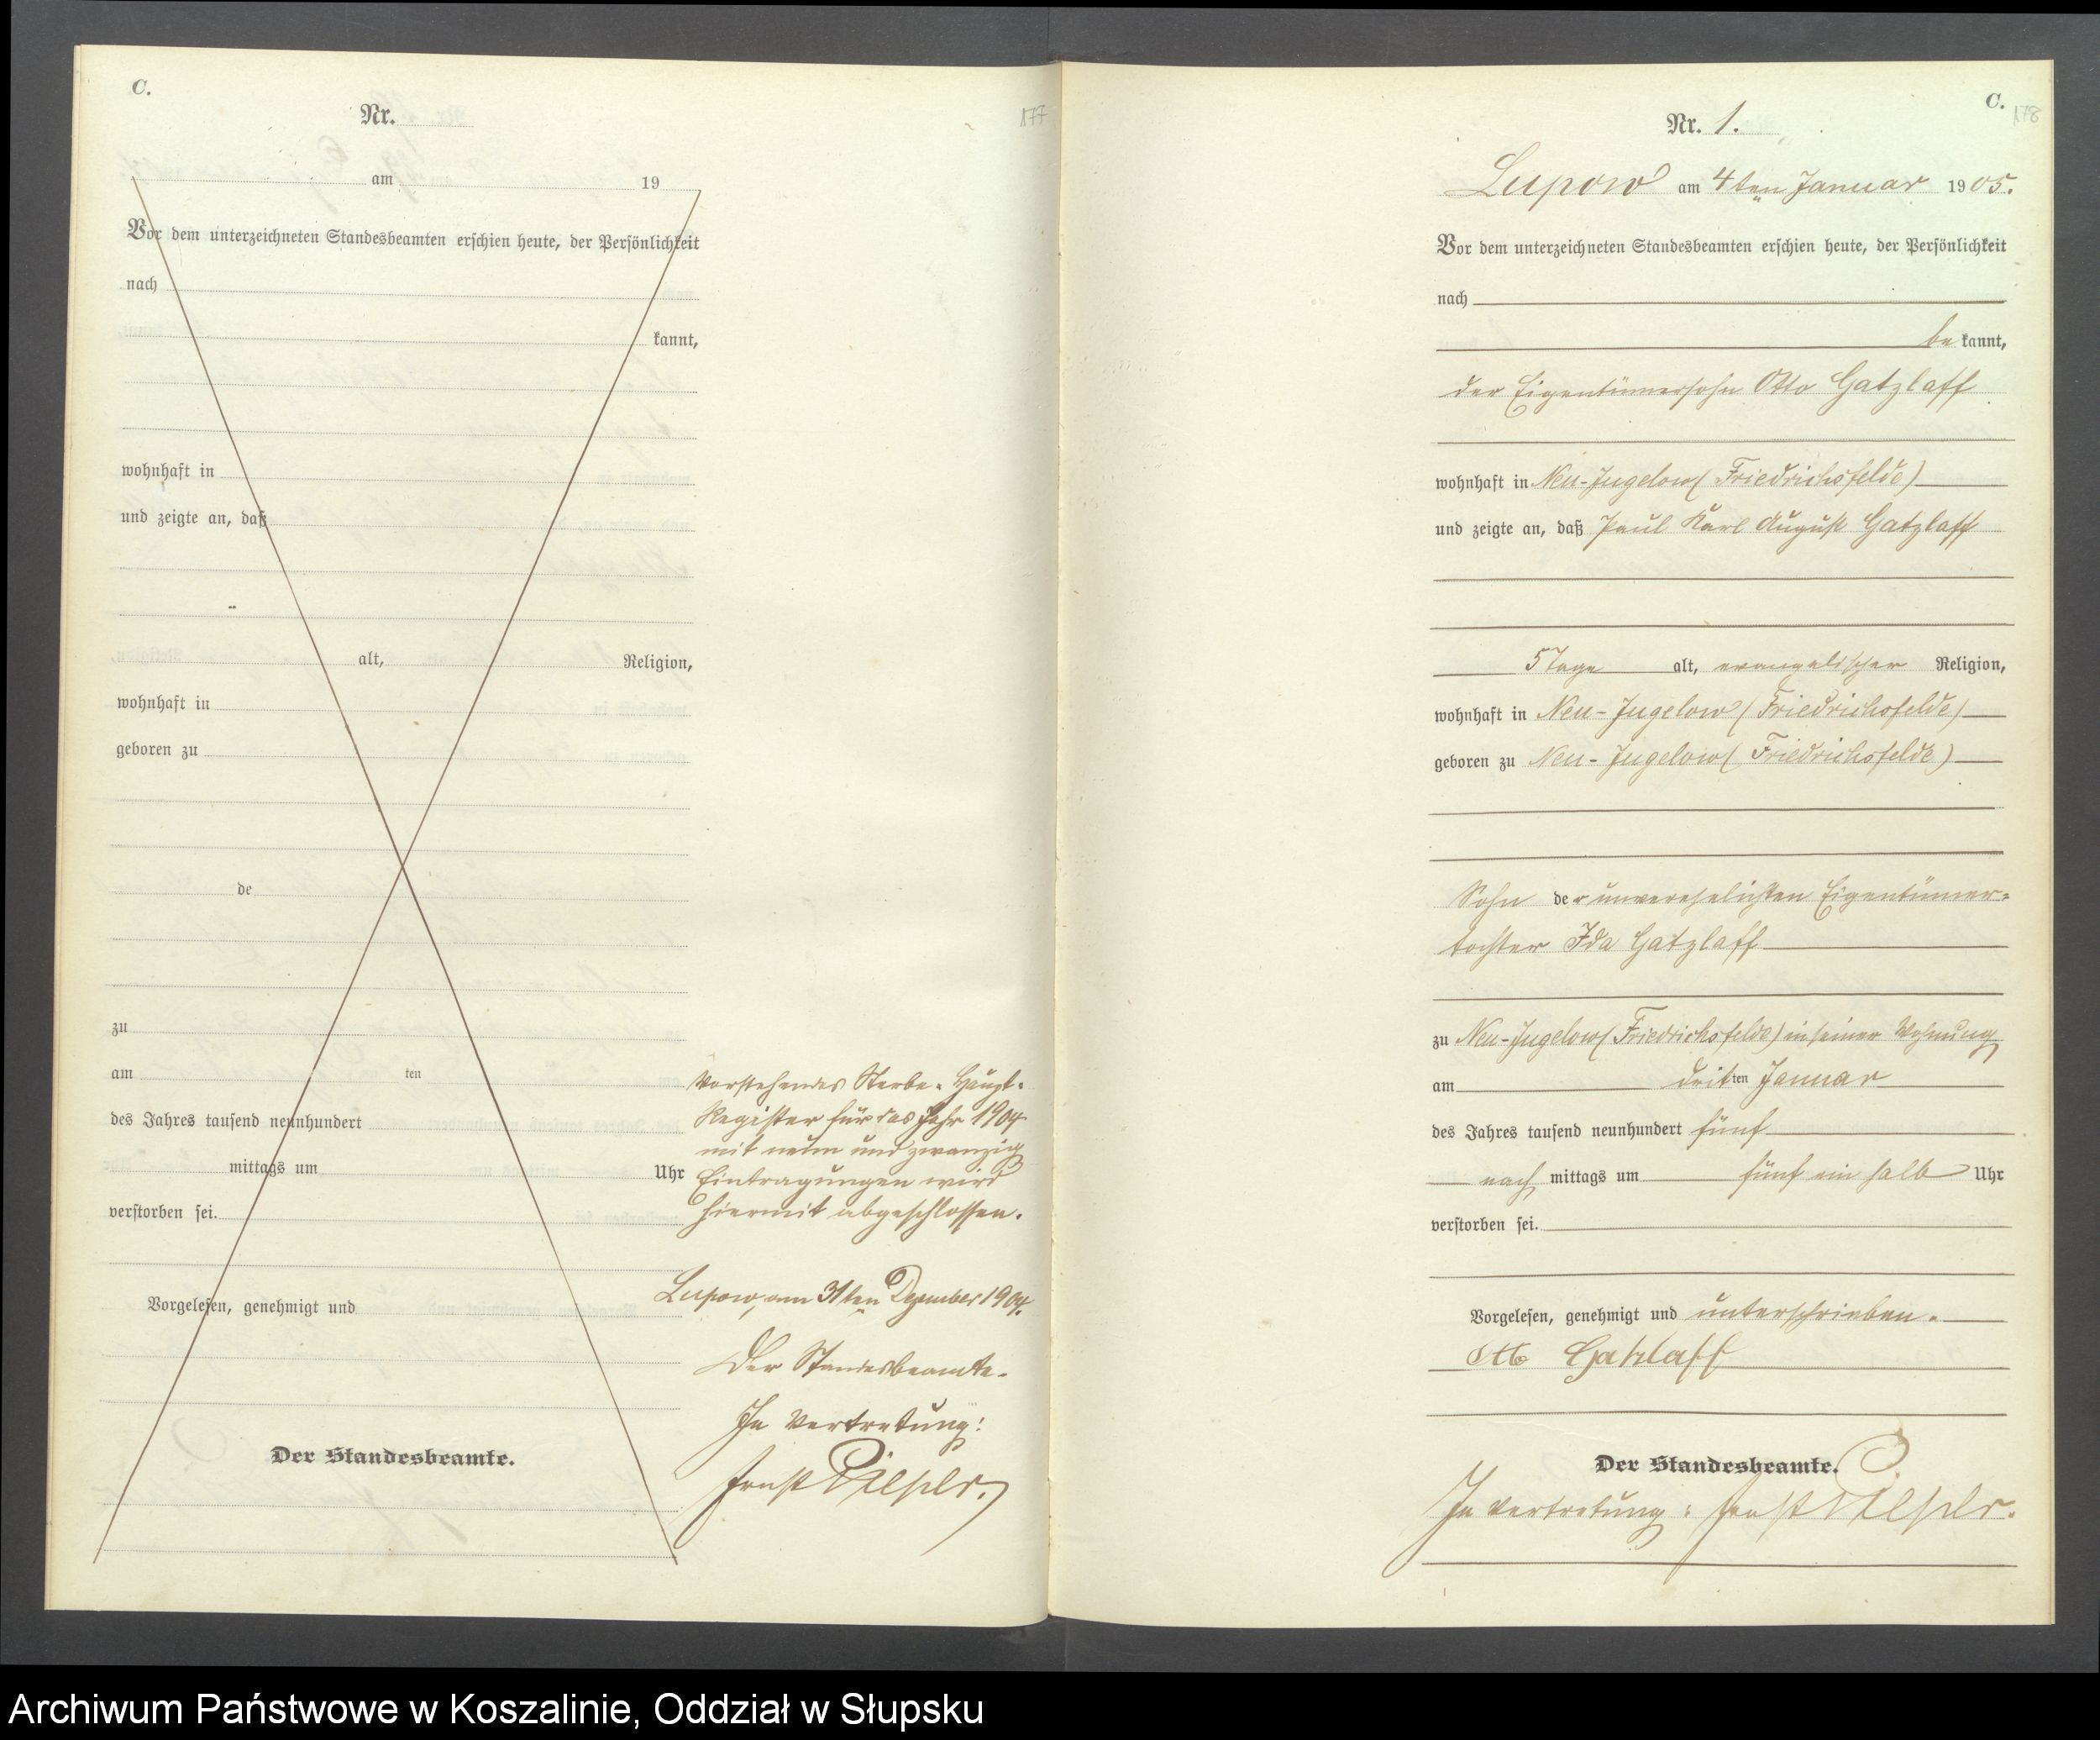 C.
177
Nr.
am 19
Vor dem unterzeichneten Standesbeamten erschien heute, der Persönlichkeit
nach
kannt,
wohnhaft in
und zeigte an, daß
alt, Religion,
wohnhaft in
geboren zu
de
zu
am ten
des Jahres tausend neunhundert
mittags um Uhr
verstorben sei.
Vorgelesen, genehmigt und
Der Standesbeamte.
Vorstehendes Sterbe-Haupt-
Register für das Jahr 1904
mit neun und zwanzig
Eintragungen wird
hiermit abgeschlossen.
Lupow, am 31ten Dezember 1904.
Der Standesbeamte.
In Vertretung:
Ernst
C.
178
Nr. 1.
Lupow am 4ten Januar 1905.
Vor dem unterzeichneten Standesbeamten erschien heute, der Persönlichkeit
nach
be kannt,
der Eigentümersohn Otto Gatzlaff
wohnhaft in Neu-Jugelow (Friedrichsfelde)
und zeigte an, daß Paul Karl August Gatzlaff
5 Tage alt, evangelischer Religion,
wohnhaft in Neu-Jugelow (Friedrichsfelde)
geboren zu Neu-Jugelow (Friedrichsfelde)
Sohn der unverehelichten Eigentümer-
tochter Ida Gatzlaff
zu Neu-Jugelow (Friedrichsfelde) in seiner Wohnung
am dritten Januar
des Jahres tausend neunhundert fünf
nach mittags um fünf ein halb Uhr
verstorben sei.
Vorgelesen, genehmigt und unterschrieben.
Otto Gatzlaff
Der Standesbeamte.
In Vertretung: Ernst
Archiwum Państwowe w Koszalinie, Oddział w Słupsku